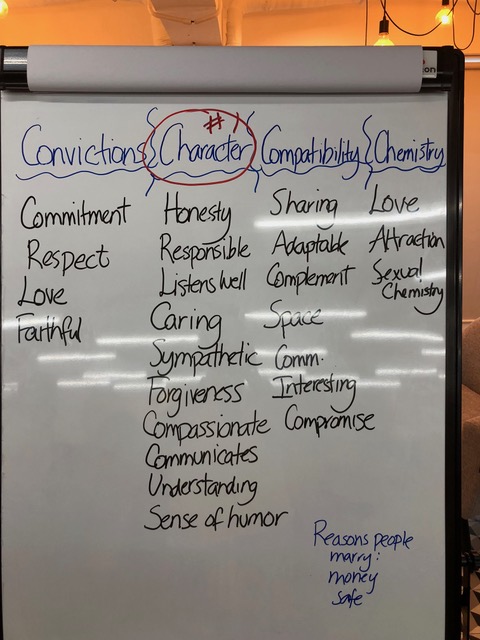 Convictions
Commitment
Respect
Love
Faithful
#1
Character
Honesty
Responsible
Listens well
Caring
Sympathetic
Forgiveness
Compassionate
Communicates
Understanding
Sense of humor
Compatibility
Sharing
Adaptable
Complement
Space
Comm.
Interesting
Compromise
Chemistry
Love
Attraction
Sexual
Chemistry
Reasons people
marry:
money
safe